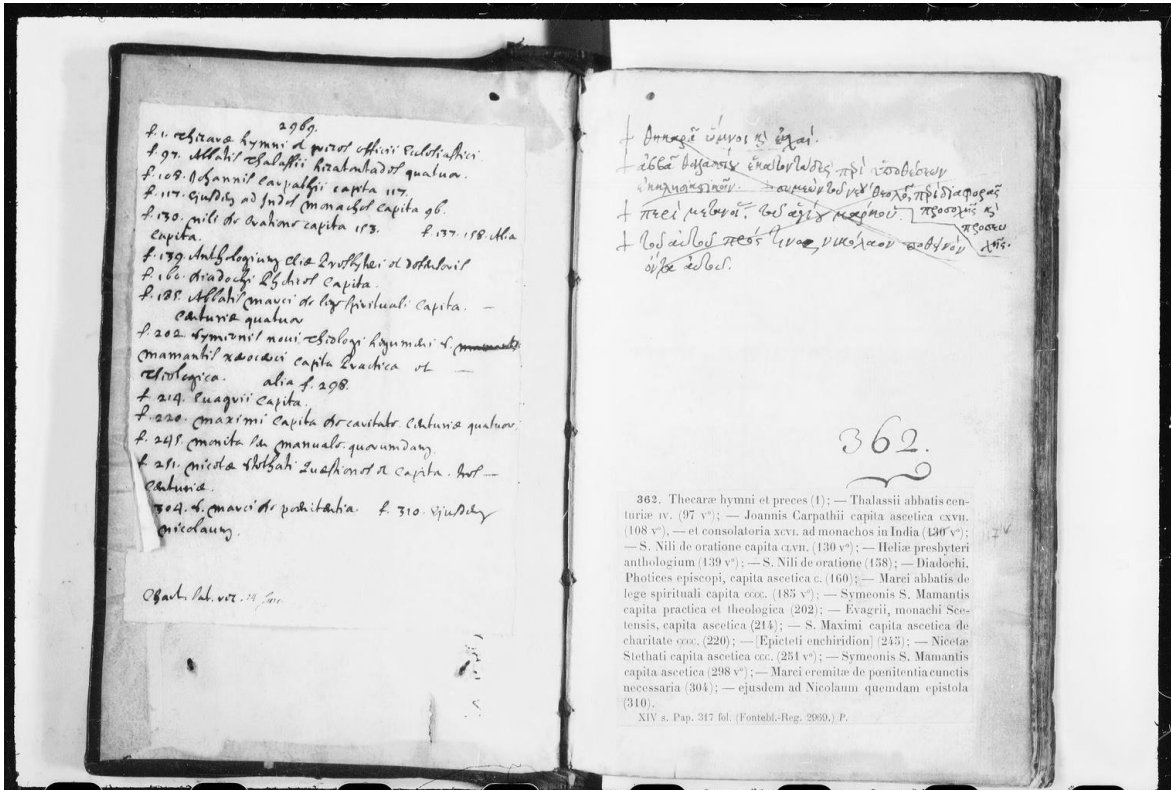 2969.
f. 1. Thecaræ hymni et preces officii Ecclesiastici.
f. 97. Abbatis Thalassii hecatontades quatuor.
f. 108. Johannis Carpathii capita 117.
f. 117. Ejusdem ad Indos monachos capita 96.
f. 130. Nili de Oratione capita 153. f. 137. 158. Alia
capita.
f. 139. Anthologium Eliæ Presbyteri
f. 160. Diadochi capita.
f. 185. Abbatis Marci de lege spirituali capita. —
Centuriæ quatuor
f. 202. Symeonis novi Theologi hegumeni S.
mamantis capita Practica et —
Theologica. alia f. 298.
f. 214. Euagrii capita.
f. 220. maximi capita de caritate. Centuriæ quatuor.
f. 245. monita seu manuale quorumdam.
f. 251. nicetæ Stethati Quæstiones et capita. tres —
Centuriæ.
304. S. marci de pœnitentia. f. 310. Ejusdem
nicolaum.
† θηκαρᾶ ὕμνοι κ(αὶ) εὐχαί.
† ἀββᾶ θαλασσίου ἑκατοντάδες περὶ ὑποθέσεων
περὶ διαφορᾶς
† περὶ μετανοί. τοῦ ἁγίου μάρκου. προσοχῆς κ(αὶ)
προσευ
† τοῦ αὐτοῦ πρός τινα νικόλαον ποθεινὸν χῆς.
αὐτοῦ.
362.
362. Thecaræ hymni et preces (1); — Thalassii abbatis cen-
turiæ IV. (97 v°); — Joannis Carpathii capita ascetica CXVII.
(108 v°), — et consolatoria XCVI. ad monachos in India (130 v°);
— S. Nili de oratione capita CLVII. (130 v°); — Heliæ presbyteri
anthologium (139 v°); — S. Nili de oratione (158); — Diadochi,
Photices episcopi, capita ascetica C. (160); — Marci abbatis de
lege spirituali capita CCCC. (185 v°); — Symeonis S. Mamantis
capita practica et theologica (202); — Evagrii, monachi Sce-
tensis, capita ascetica (214); — S. Maximi capita ascetica de
charitate CCCC. (220); — [Epicteti enchiridion] (245); — Nicetæ
Stethati capita ascetica CCC. (251 v°); — Symeonis S. Mamantis
capita ascetica (298 v°); — Marci eremitæ de pœnitentia cunctis
necessaria (304); — ejusdem ad Nicolaum quemdam epistola
(310).
XIV s. Pap. 317 fol. (Fontebl.-Reg. 2969.) P.
117 v